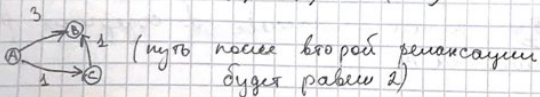 3
B
A
1
1
C
(путь после второй релаксации
будет равен 2)